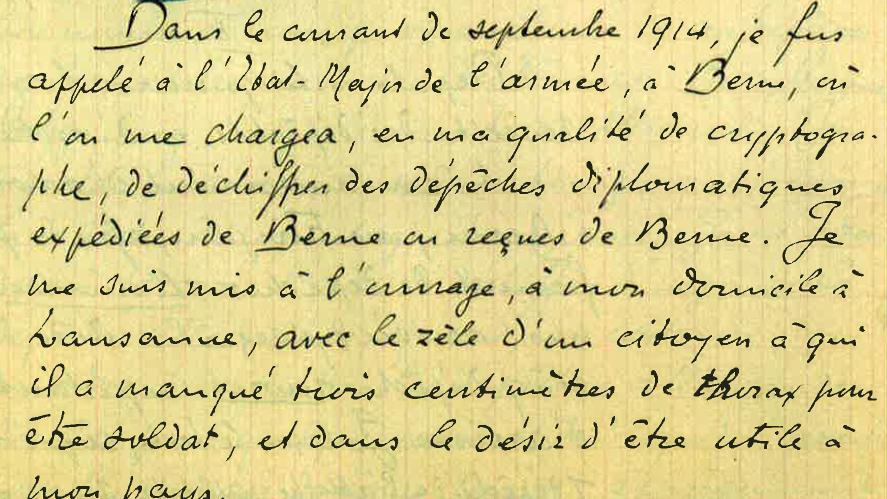 Dans le courant de septembre 1914, je fus
appelé à l'Etat-Major de l'armée, à Berne, où
l'on me chargea, en ma qualité de cryptogra-
phe, de déchiffrer des dépêches diplomatiques
expédiées de Berne ou reçues de Berne. Je
me suis mis à l'ouvrage, à mon domicile à
Lausanne, avec le zèle d'un citoyen à qui
il a manqué trois centimètres de thorax pour
être soldat, et dans le désir d'être utile à
mon pays.